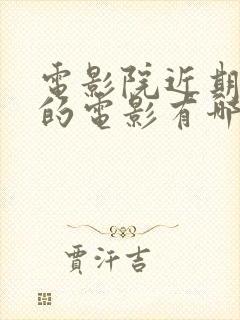 電影院近期
的電影有哪
賈汗吉